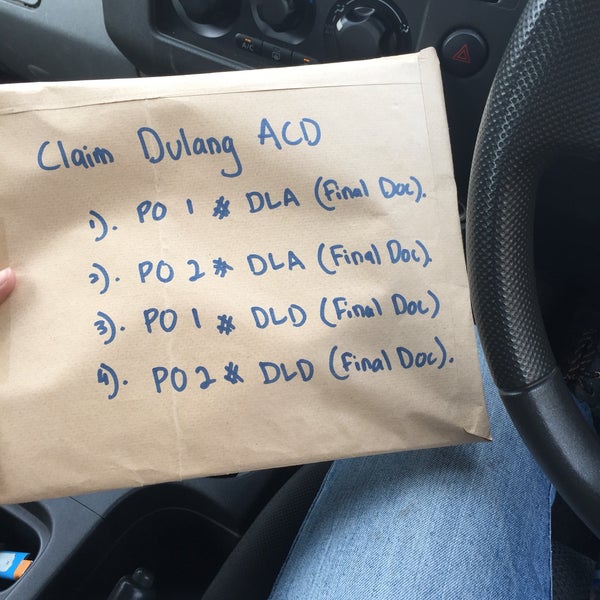 A/C
Claim Dulang ACD
1). PO 1 # DLA (Final Doc).
2). PO 2 # DLA (Final Doc).
3). PO 1 # DLD (Final Doc)
4). PO 2 # DLD (Final Doc).